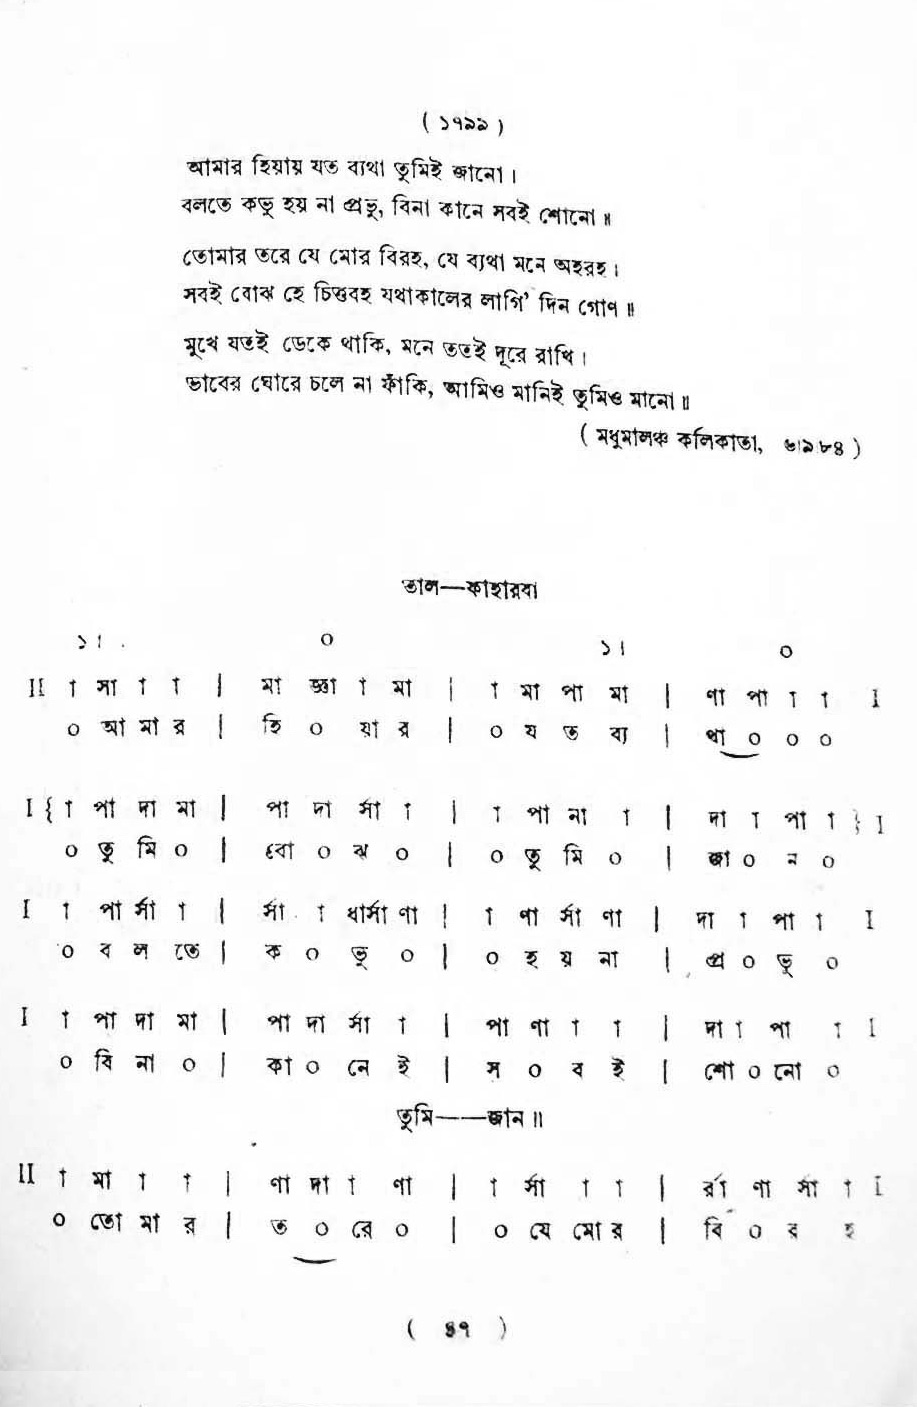 ( ১৭৯৯ )
আমার হিয়ায় যত ব্যথা তুমিই জানো।
বলতে কভু হয় না প্রভু, বিনা কানে সবই শোনো॥
তোমার তরে যে মোর বিরহ, যে ব্যথা মনে অহরহ।
সবই বোঝ হে চিত্তবহ যথাকালের লাগি’ দিন গোণ॥
মুখে যতই ডেকে থাকি, মনে ততই দূরে রাখি।
ভাবের ঘোরে চলে না ফাঁকি, আমিও মানিই তুমিও মানো॥
( মধুমালঞ্চ কলিকাতা, ৬।৯।৮৪ )
তাল—কাহারবা
১। ০ ১। ০
II া সা া া | মা জ্ঞা া মা | া মা পা মা | ণা পা া া I
০ আ মা র | হি ০ য়া র | ০ য ত ব্য | থা ০ ০ ০
I { া পা দা মা | পা দা র্সা া | া পা না া | দা া পা া } I
০ তু মি ০ | বো ০ ঝ ০ | ০ তু মি ০ | জা ০ ন ০
I া পা র্সা া | র্সা া ধা র্সা ণা | া ণা র্সা ণা | দা া পা া I
০ ব ল তে | ক ০ ভু ০ | ০ হ য় না | প্র ০ ভু ০
I া পা দা মা | পা দা র্সা া | পা ণা া া | দা া পা া I
০ বি না ০ | কা ০ নে ই | স ০ ব ই | শো ০ নো ০
তুমি——জান॥
II া মা া া | ণা দা া ণা | া র্সা া া | র্রা ণা র্সা া I
০ তো মা র | ত ০ রে ০ | ০ যে মো র | বি ০ র হ
( ৪৭ )